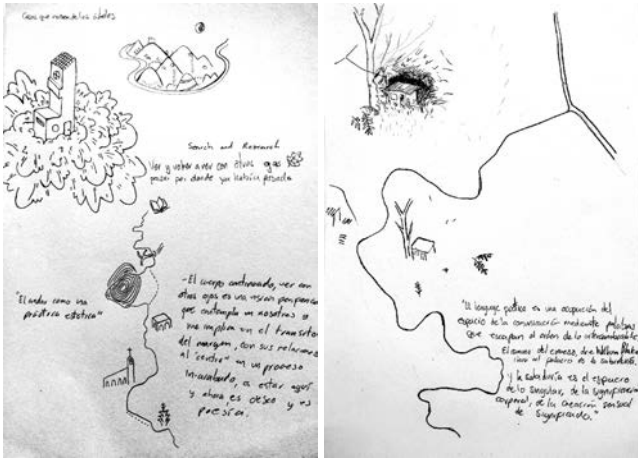 Casas que nacen de los árboles
Search and Research
Ver y volver a ver con otros ojos
pasar por donde ya habría pasado
"El andar como una
práctica estética"
- El cuerpo continuado, ver con
otros ojos es una visión
que contempla en nosotros
una en el transito
del margen, con sus relaciones
al "centro" en un proceso
inacabado, a estar aquí
y ahora, es deseo y es
poesía.
"El lenguaje poético es una ocupación del
espacio de la comunicación mediante palabras
que escapan al orden de lo intercambiable.
El camino del exceso, dice William Blake
lleva al palacio de la sabiduría.
y la sabiduría es el espacio
de lo singular, de la significación
corporal, de la creación sensual
de significado."